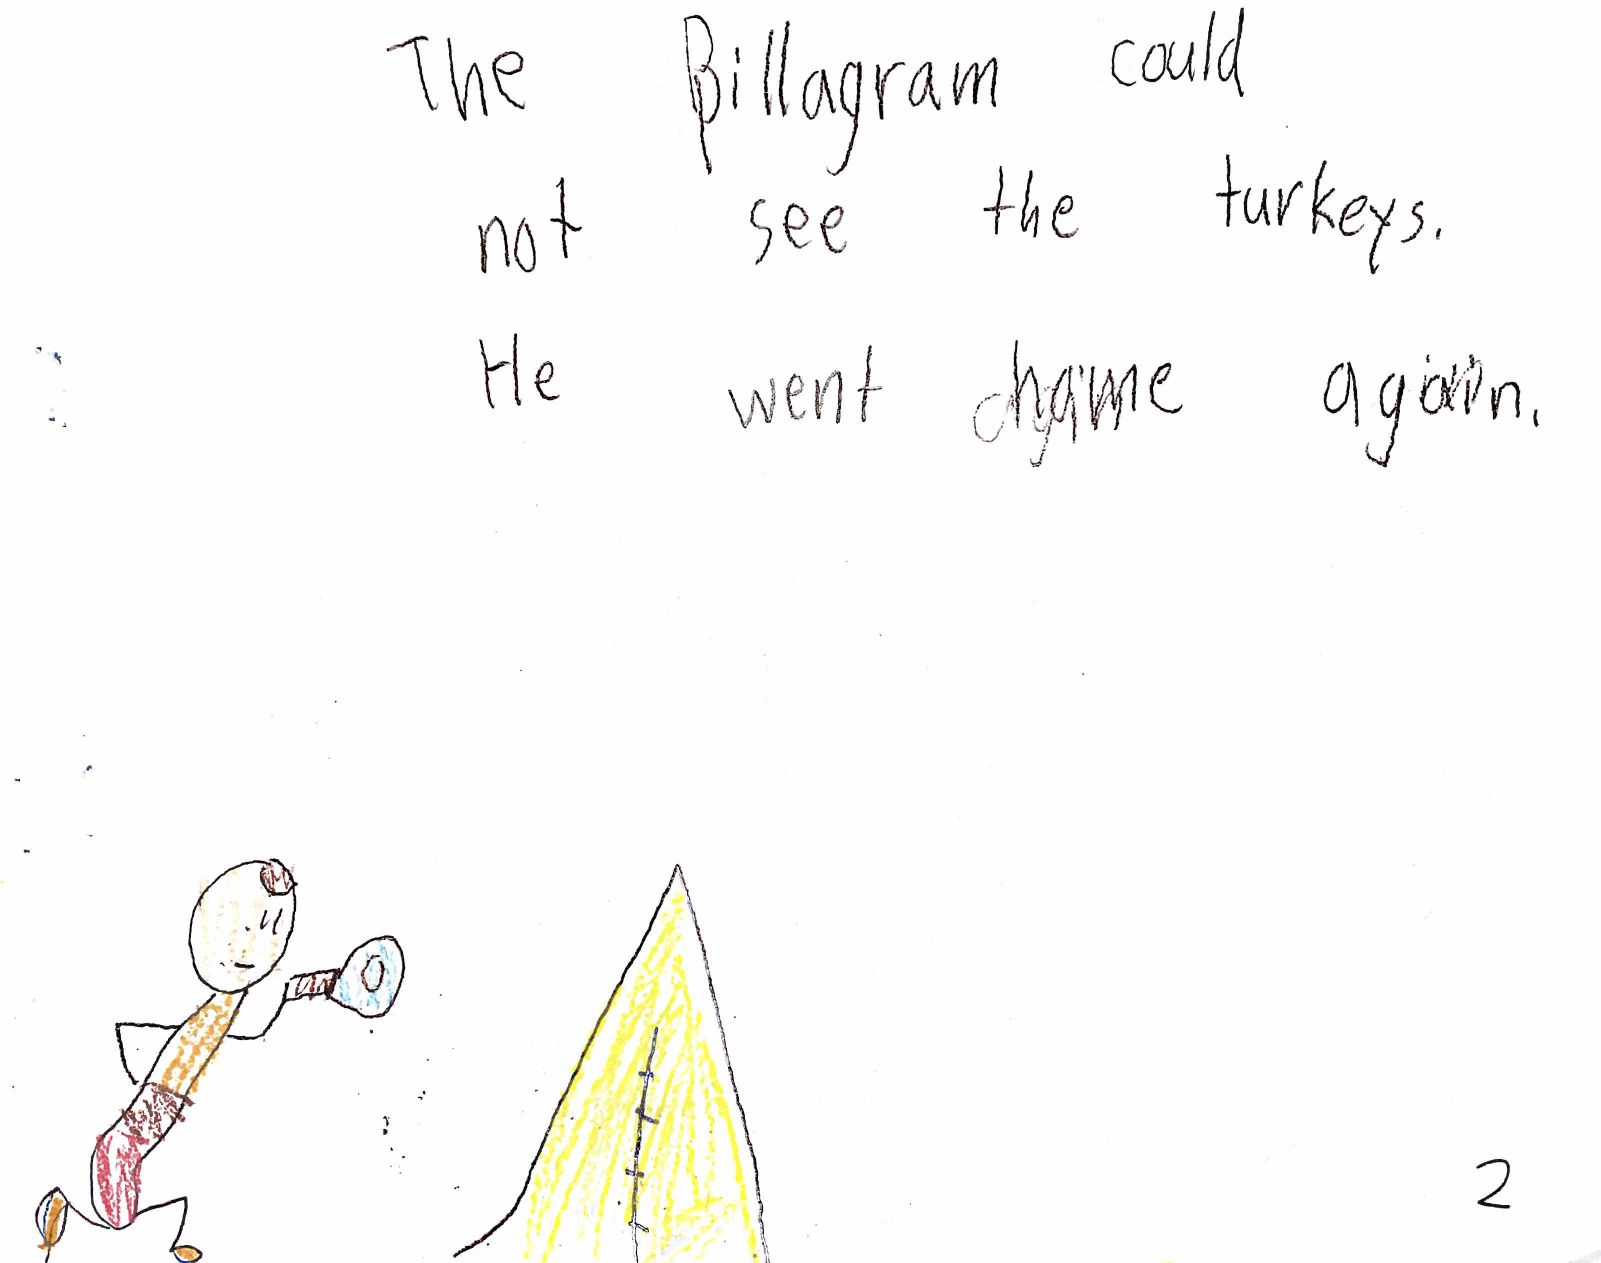 The Billagram could
not see the turkeys.
He went again.
2